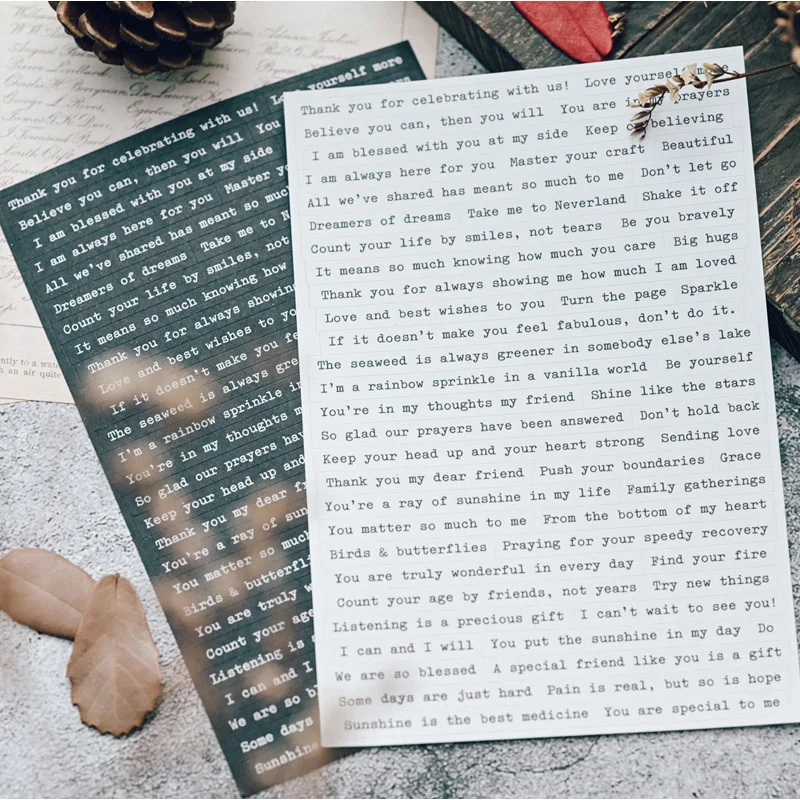 Thank you for celebrating with us! Love yourself more
Believe you can, then you will You are in my prayers
I am blessed with you at my side Keep on believing
I am always here for you Master your craft Beautiful
All we've shared has meant so much to me Don't let go
Dreamers of dreams Take me to Neverland Shake it off
Count your life by smiles, not tears Be you bravely
It means so much knowing how much you care Big hugs
Thank you for always showing me how much I am loved
Love and best wishes to you Turn the page Sparkle
If it doesn't make you feel fabulous, don't do it.
The seaweed is always greener in somebody else's lake
I'm a rainbow sprinkle in a vanilla world Be yourself
You're in my thoughts my friend Shine like the stars
So glad our prayers have been answered Don't hold back
Keep your head up and your heart strong Sending love
Thank you my dear friend Push your boundaries Grace
You're a ray of sunshine in my life Family gatherings
You matter so much to me From the bottom of my heart
Birds & butterflies Praying for your speedy recovery
You are truly wonderful in every day Find your fire
Count your age by friends, not years Try new things
Listening is a precious gift I can't wait to see you!
I can and I will You put the sunshine in my day Do
We are so blessed A special friend like you is a gift
Some days are just hard Pain is real, but so is hope
Sunshine is the best medicine You are special to me
Thank you for celebrating with us! Love yourself more
Believe you can, then you will You
I am blessed with you at my side
I am always here for you Master
All we've shared has meant so muc
Dreamers of dreams Take me to N
Count your life by smiles, not
It means so much knowing how
Thank you for always showing
Love and best wishes to yo
If it doesn't make you fe
The seaweed is always gree
I'm a rainbow sprinkle in
You're in my thoughts m
So glad our prayers hav
Keep your head up and
Thank you my dear fr
You're a ray of sun
You matter so much
Birds & butterfli
You are truly w
Count your age
Listening is a
I can and I
We are so bl
Some days
Sunshine